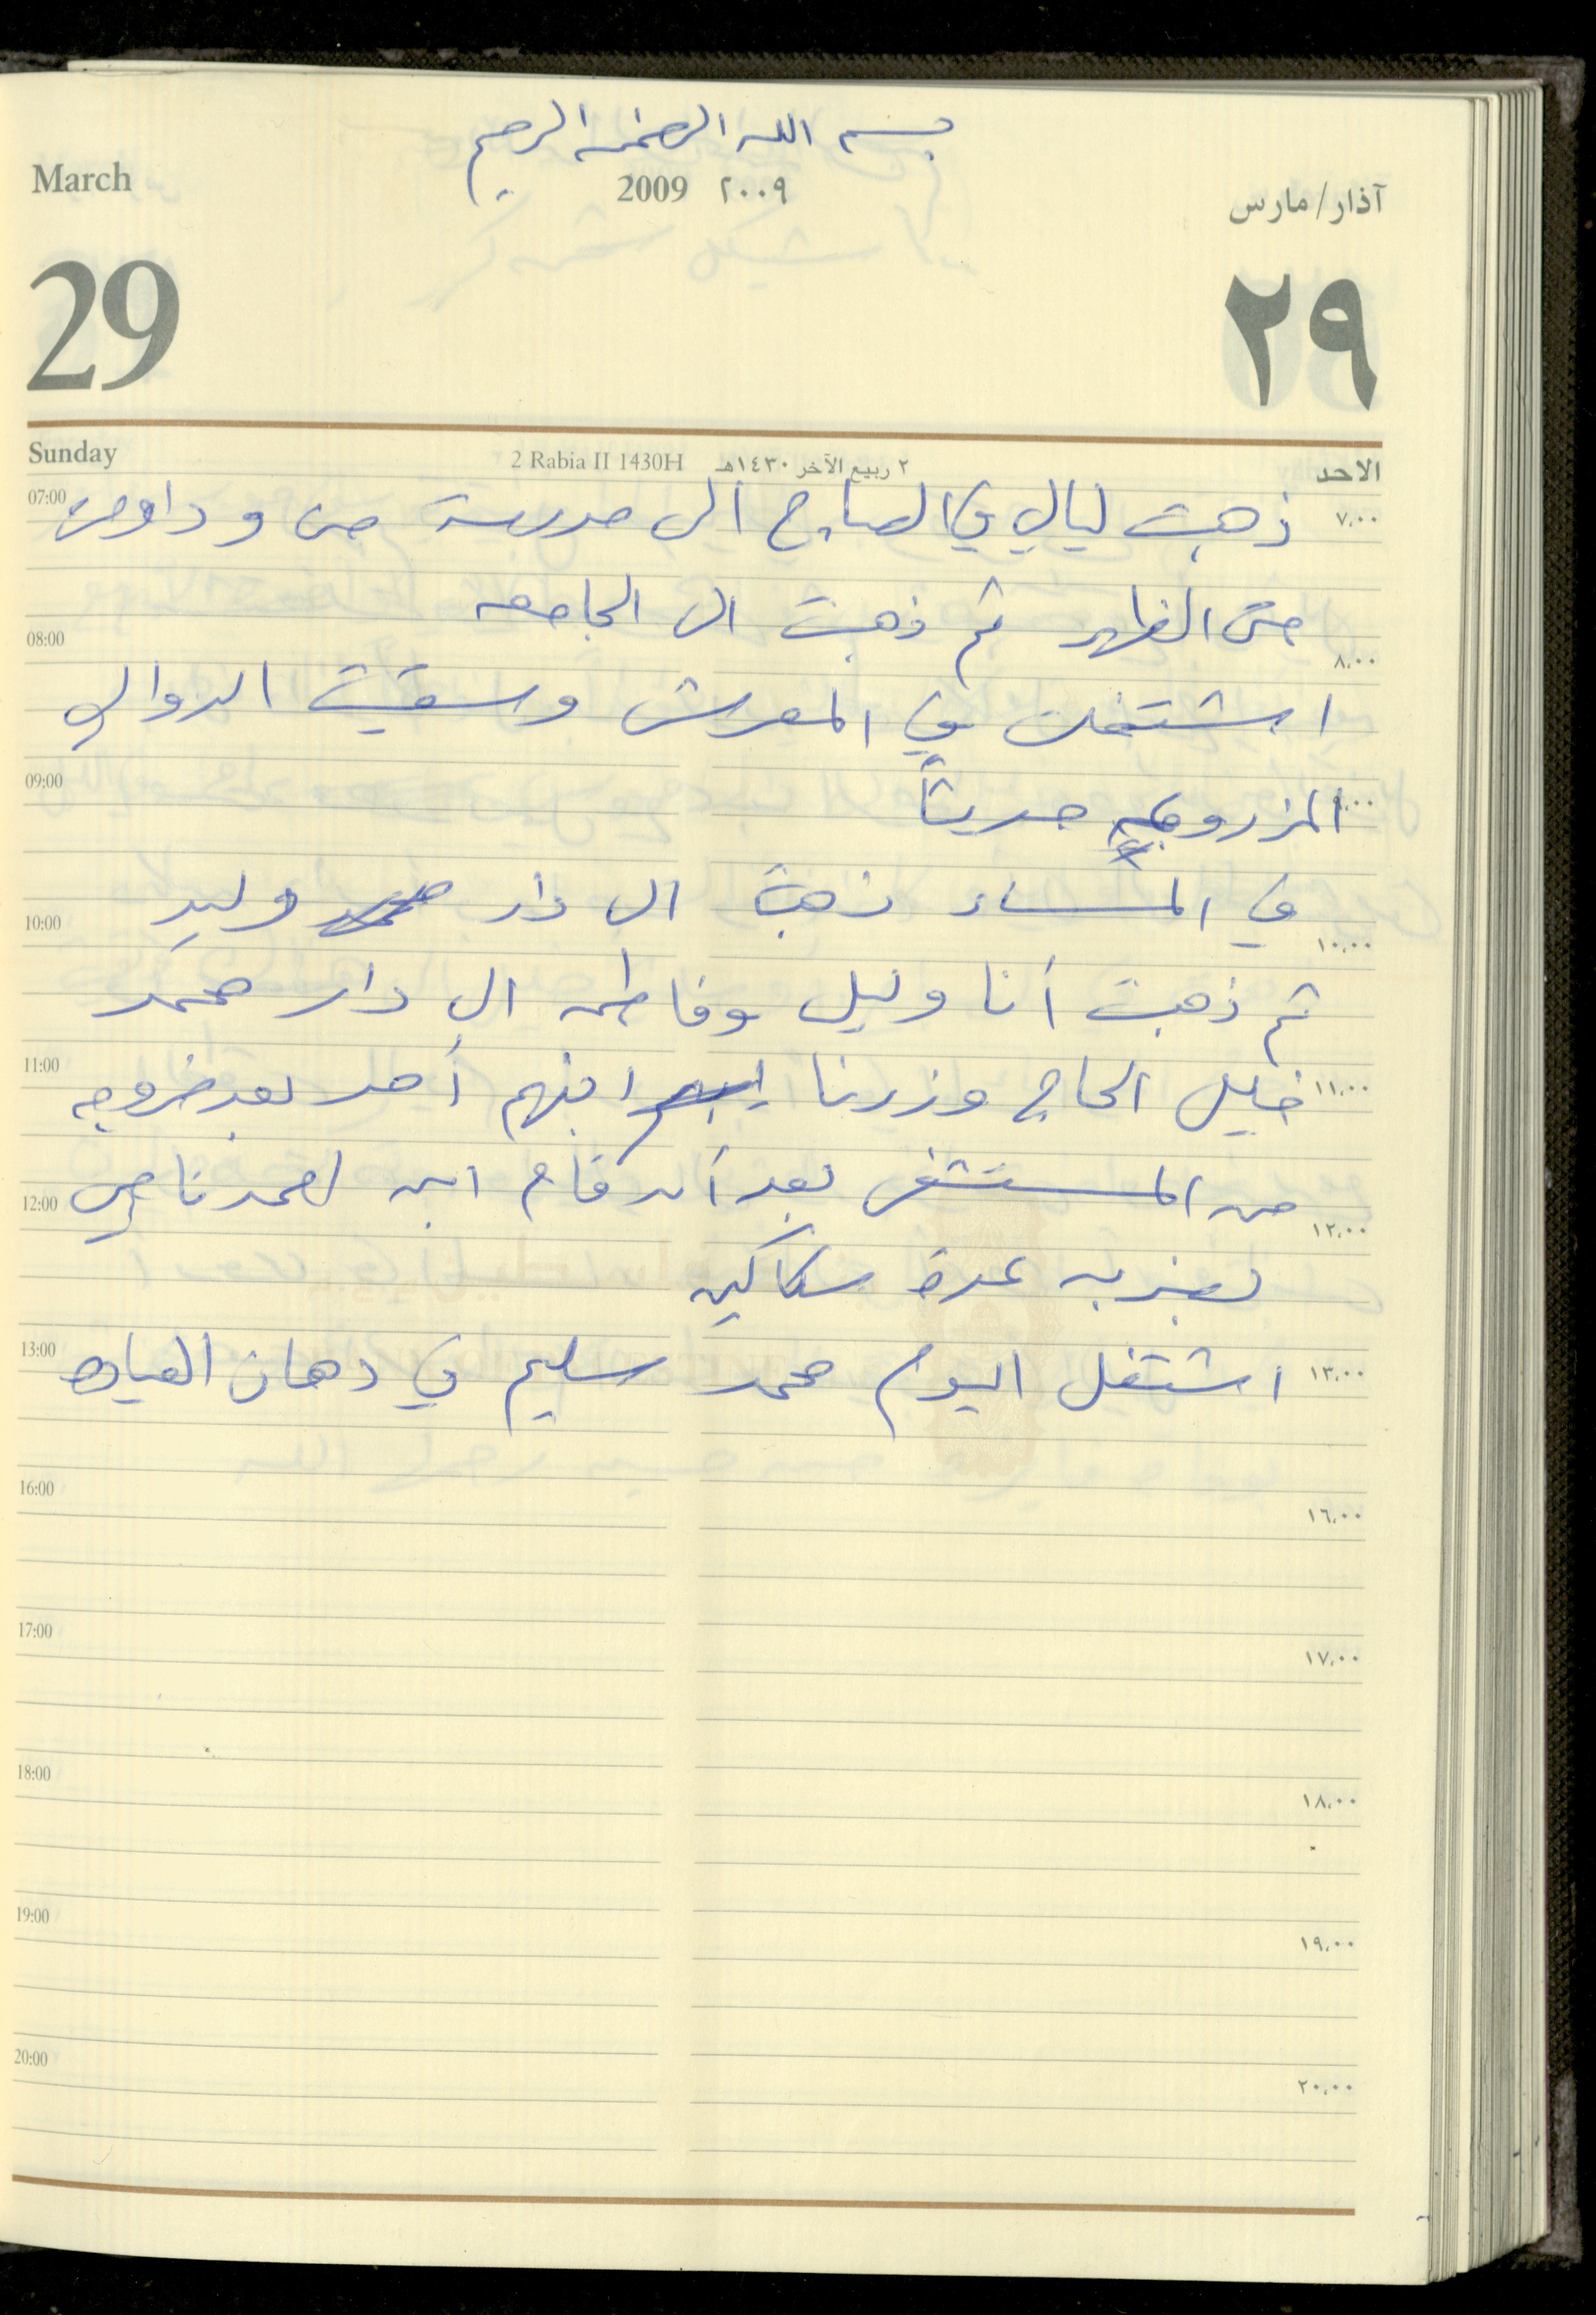 بسم الله الرحمن الرحيم
March 2009 ٢٠٠٩ آذار/مارس
29 ٢٩
Sunday 2 Rabia II 1430H ٢ ربيع الآخر ١٤٣٠هـ الاحد
07:00 ذهبت ليالي في الصباح الى مدرسة حس وداومت ٧,٠٠
حتى الظهر ثم ذهبت الى الجامعه
08:00 ٨,٠٠
اشتغلت في المعرش وسقيت الدوالي
09:00 المزروعه حديثاً ٩,٠٠
في المساء ذهبت الى دار وليد
10:00 ١٠,٠٠
ثم ذهبت أنا وليلى وفاطمه الى دار محمد
11:00 خليل الحاج وزرنا ابنهم أحمد بعد خروجه ١١,٠٠
من المستشفى بعد أن قام ابن لمحمد ناجي
12:00 ١٢,٠٠
بضربه عدة سكاكين
13:00 اشتغل اليوم محمد سليم في دهان العياده ١٣,٠٠
16:00 ١٦,٠٠
17:00 ١٧,٠٠
18:00 ١٨,٠٠
19:00 ١٩,٠٠
20:00 ٢٠,٠٠